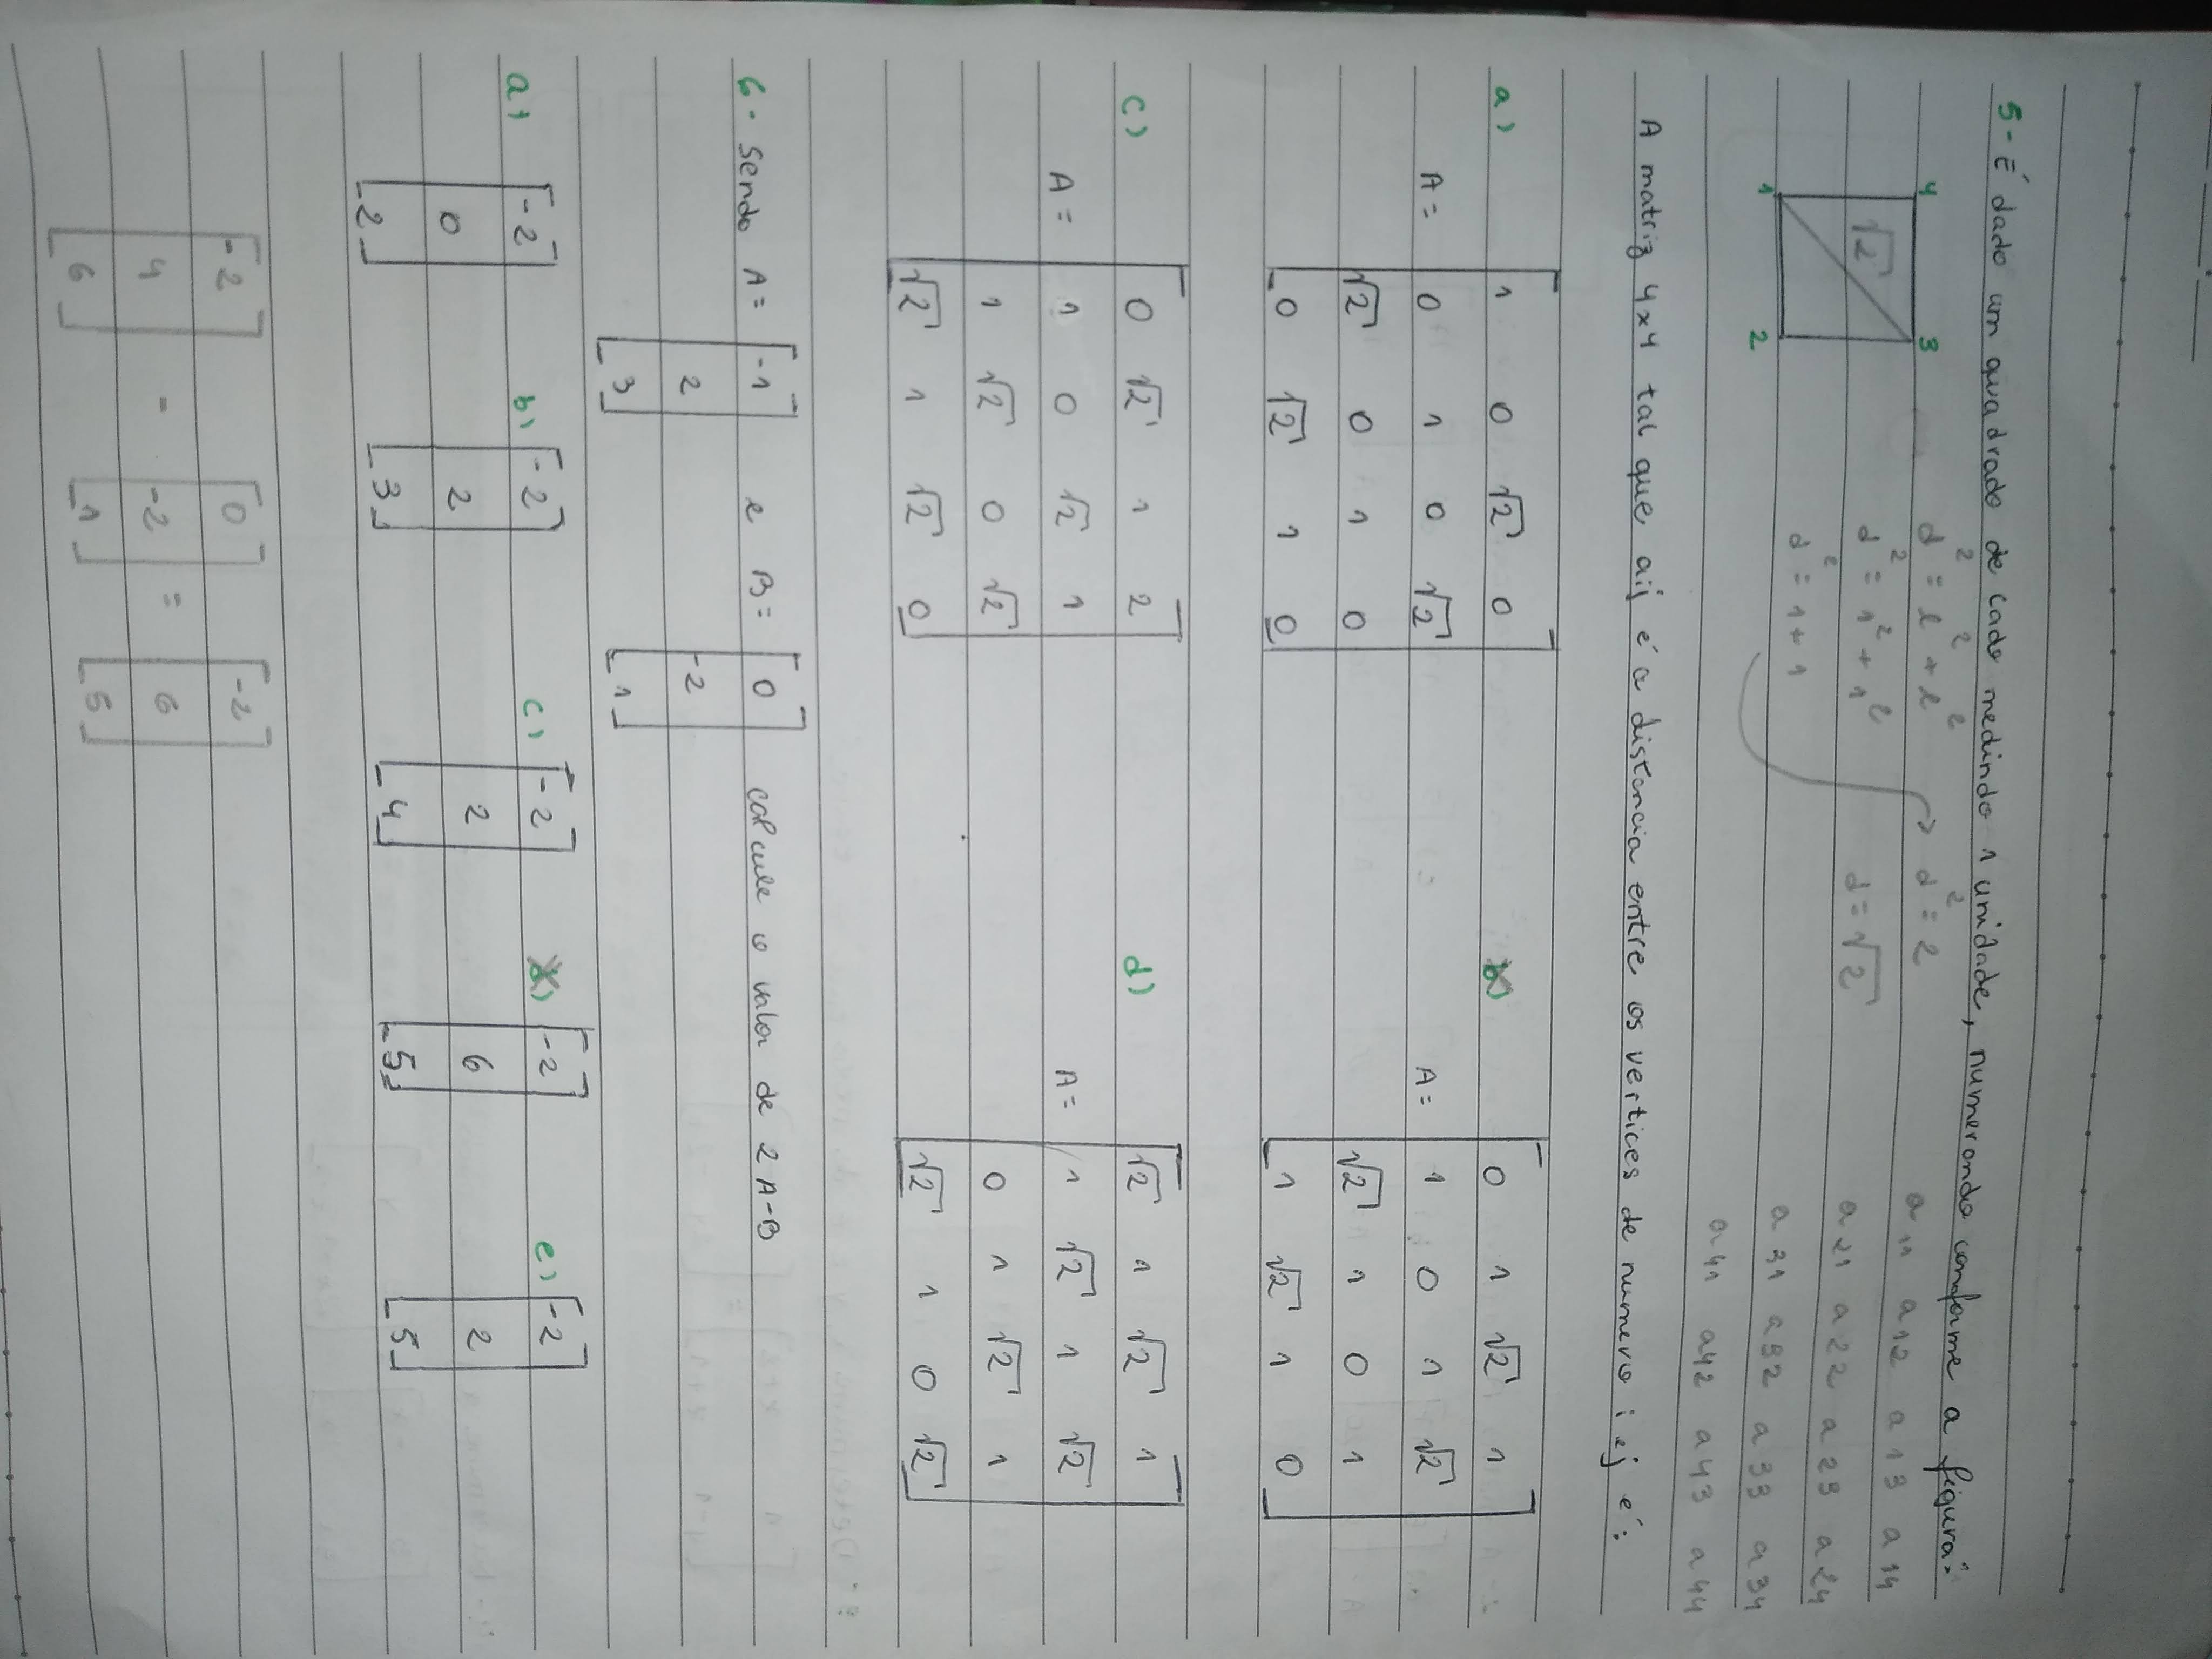 5- É dado um quadrado de lado medindo 1 unidade, numerando conforme a figura:
4 3
√2
1 2
d² = l² + l² → d² = 2
d² = 1² + 1² d = √2
d² = 1 + 1
a11 a12 a13 a14
a21 a22 a23 a24
a31 a32 a33 a34
a41 a42 a43 a44
A matriz 4x4 tal que aij é a distancia entre os vertices de numero i e j é:
a) b)
1 0 √2 0 0 1 √2 1
A = 0 1 0 √2 A = 1 0 1 √2
√2 0 1 0 √2 1 0 1
0 √2 1 0 1 √2 1 0
c) d)
0 √2 1 2 √2 1 √2 1
A = 1 0 √2 1 A = 1 √2 1 √2
1 √2 0 √2 0 1 √2 1
√2 1 √2 0 √2 1 0 √2
6- Sendo A = -1 e B = 0 calcule o valor de 2A-B
2 -2
3 1
a) -2 b) -2 c) -2 d) -2 e) -2
0 2 2 6 2
2 3 4 5 5
-2 0 -2
4 - -2 = 6
6 1 5